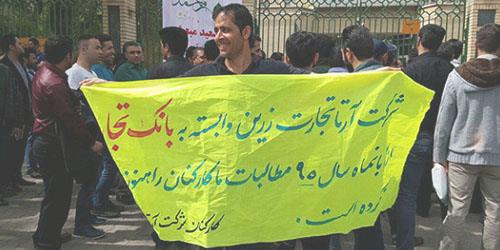 شرکت آرتا تجارت زرین وابسته به بانک تجا
از آبانماه سال ۹۵ مطالبات ما کارکنان را هنوز
نکرده است.
کارکنان شرکت آر